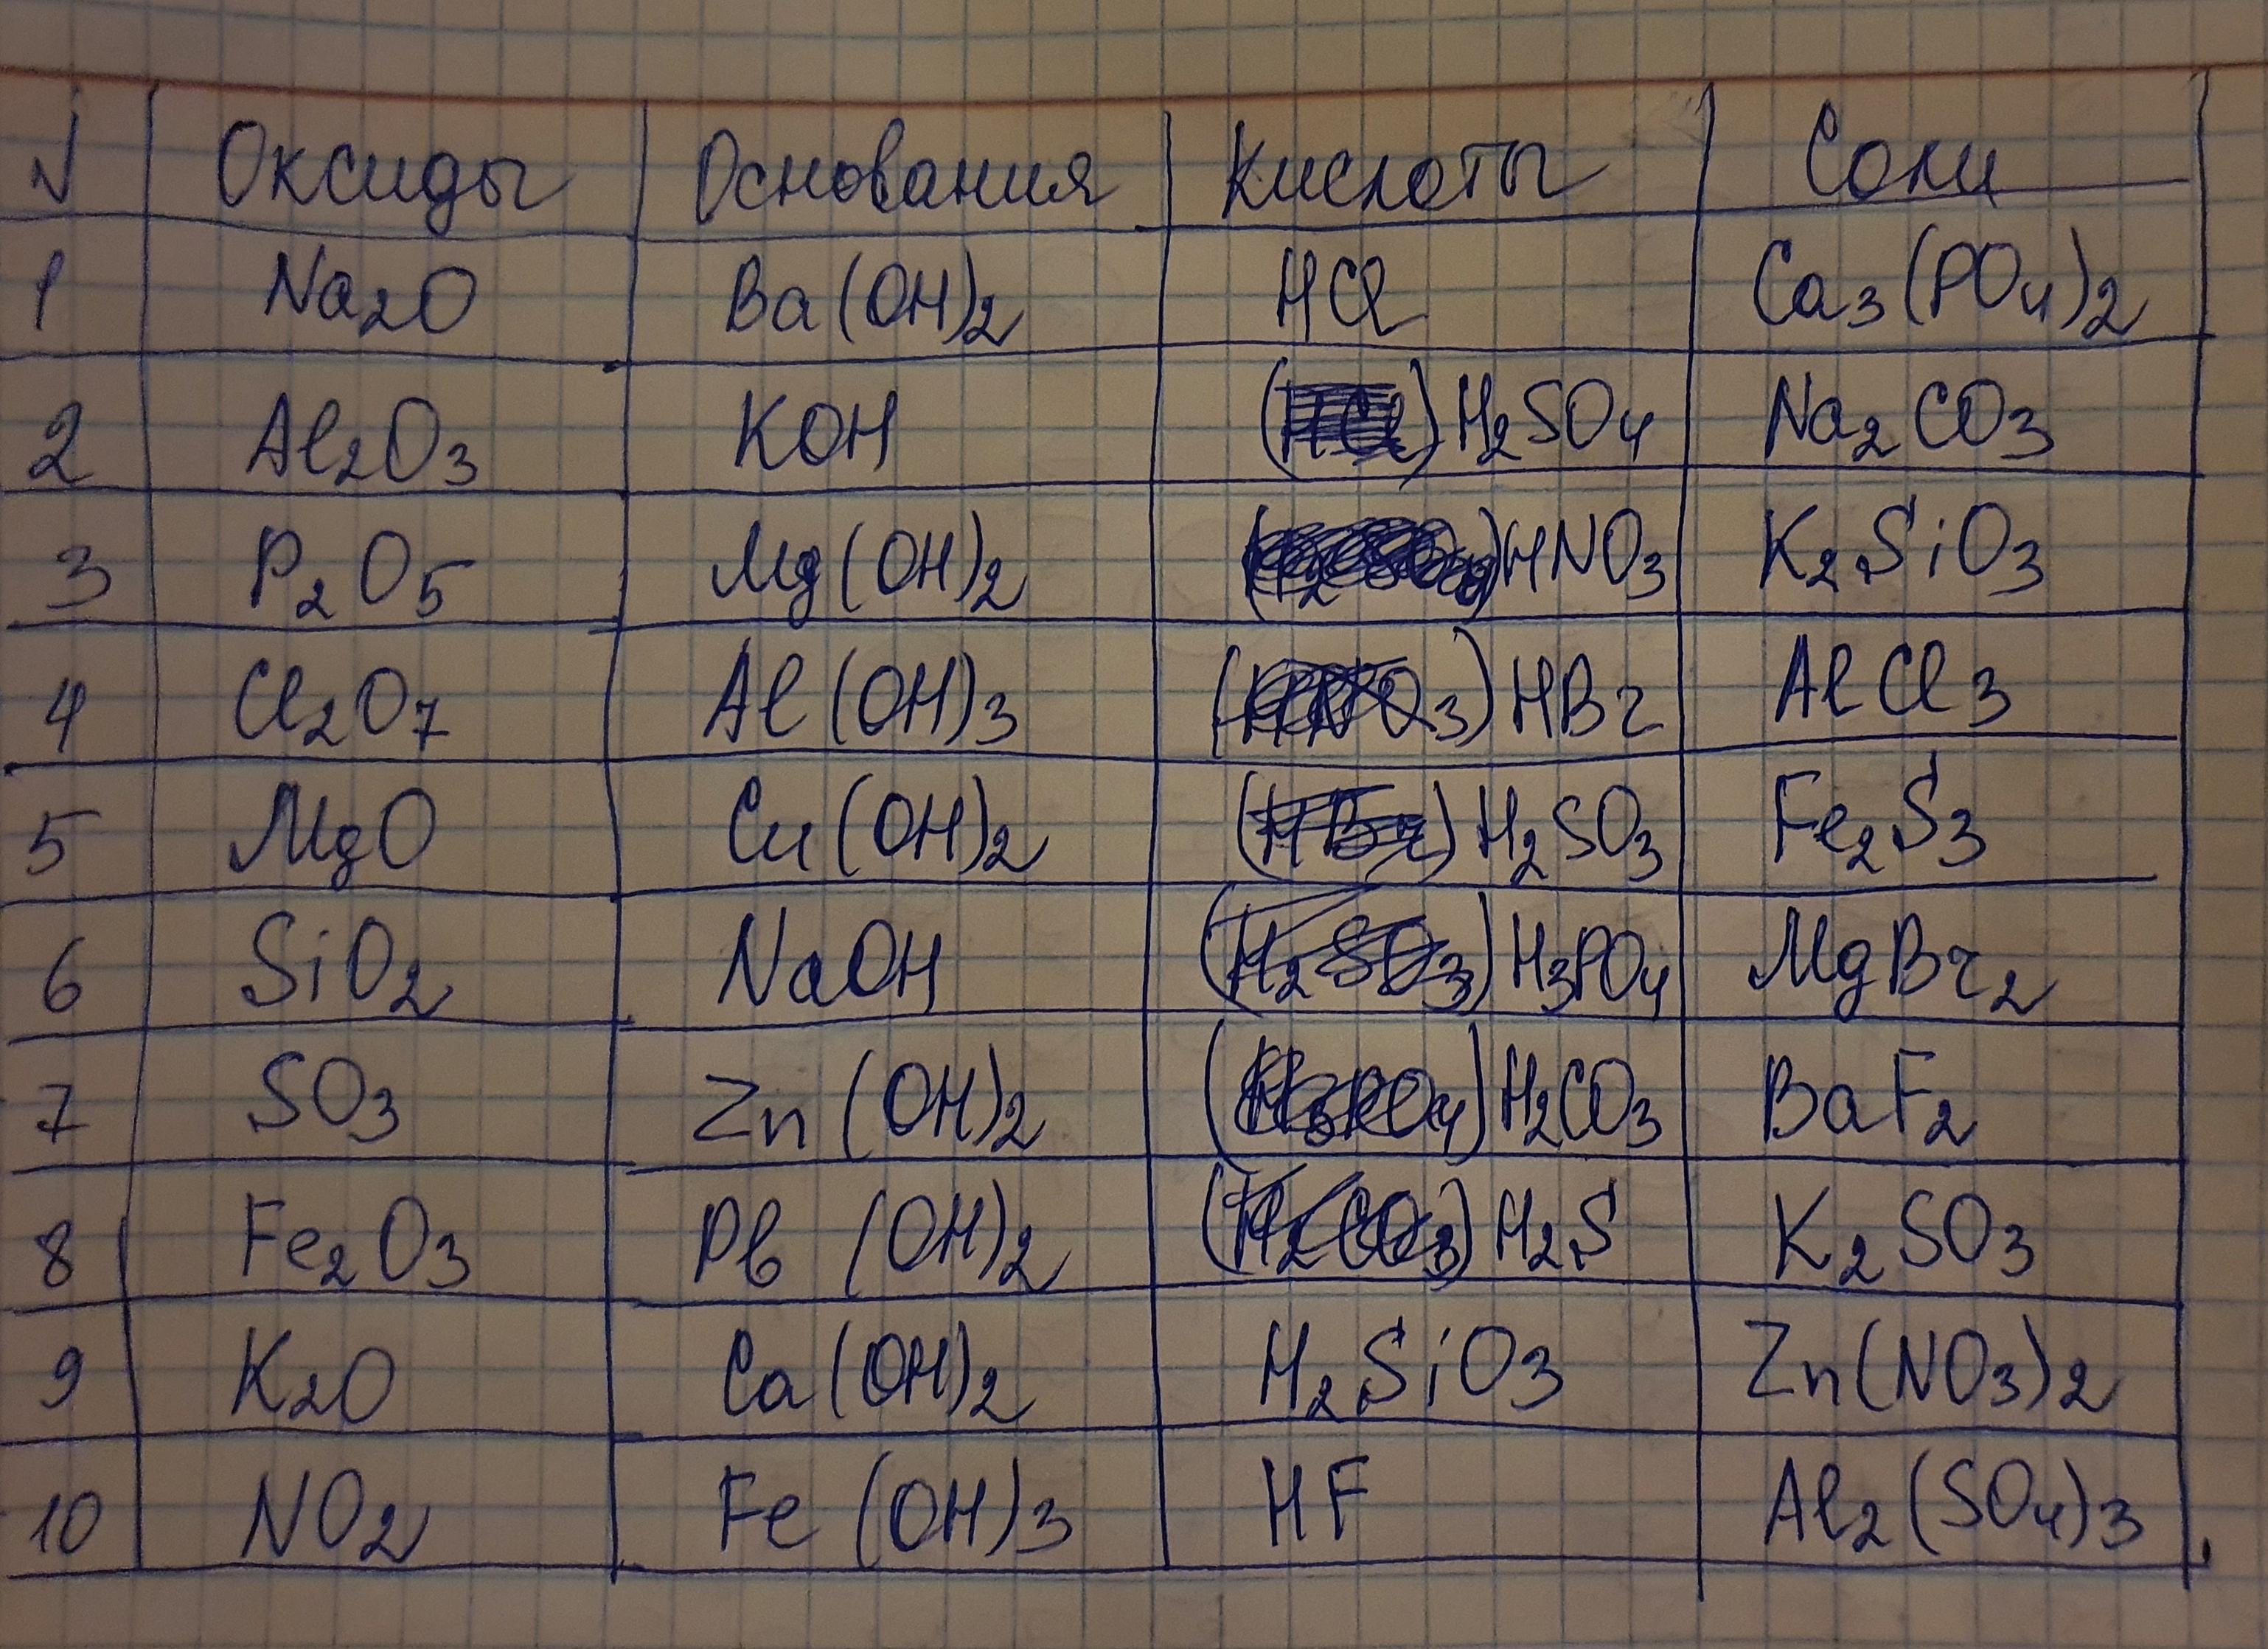 № Оксиды Основания Кислоты Соли
1 Na₂O Ba(OH)₂ HCl Ca₃(PO₄)₂
2 Al₂O₃ KOH (HCl) H₂SO₄ Na₂CO₃
3 P₂O₅ Mg(OH)₂ (H₂SO₄) HNO₃ K₂SiO₃
4 Cl₂O₇ Al(OH)₃ (HNO₃) HBr AlCl₃
5 MgO Cu(OH)₂ (HBr) H₂SO₃ Fe₂S₃
6 SiO₂ NaOH (H₂SO₃) H₃PO₄ MgBr₂
7 SO₃ Zn(OH)₂ (H₃PO₄) H₂CO₃ BaF₂
8 Fe₂O₃ Pb(OH)₂ (H₂CO₃) H₂S K₂SO₃
9 K₂O Ca(OH)₂ H₂SiO₃ Zn(NO₃)₂
10 NO₂ Fe(OH)₃ HF Al₂(SO₄)₃